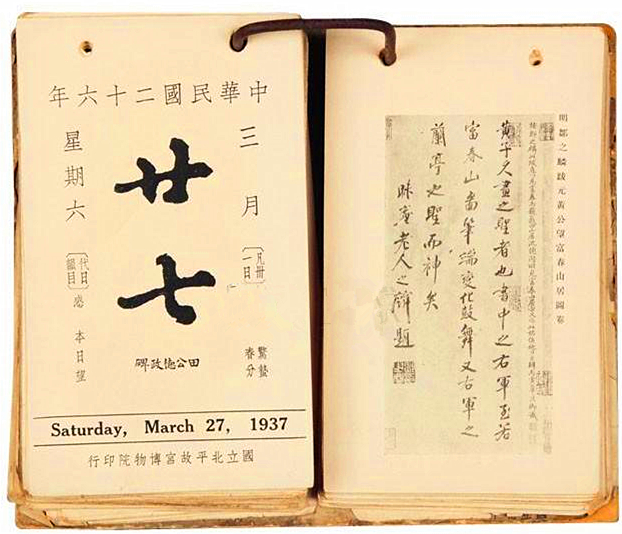 中華民國二十六年
三月
〔凡卅一日〕
驚蟄
春分
廿七
田公德政碑
星期六
〔代日韻目〕感 本日望
Saturday, March 27, 1937
國立北平故宮博物院印行
明鄒之麟跋元黃公望富春山居圖卷
黃子久畫之聖者也書中之右軍至若
富春山圖筆端變化鼓舞又右軍之
蘭亭也聖而神矣
昧庵老人之麟題